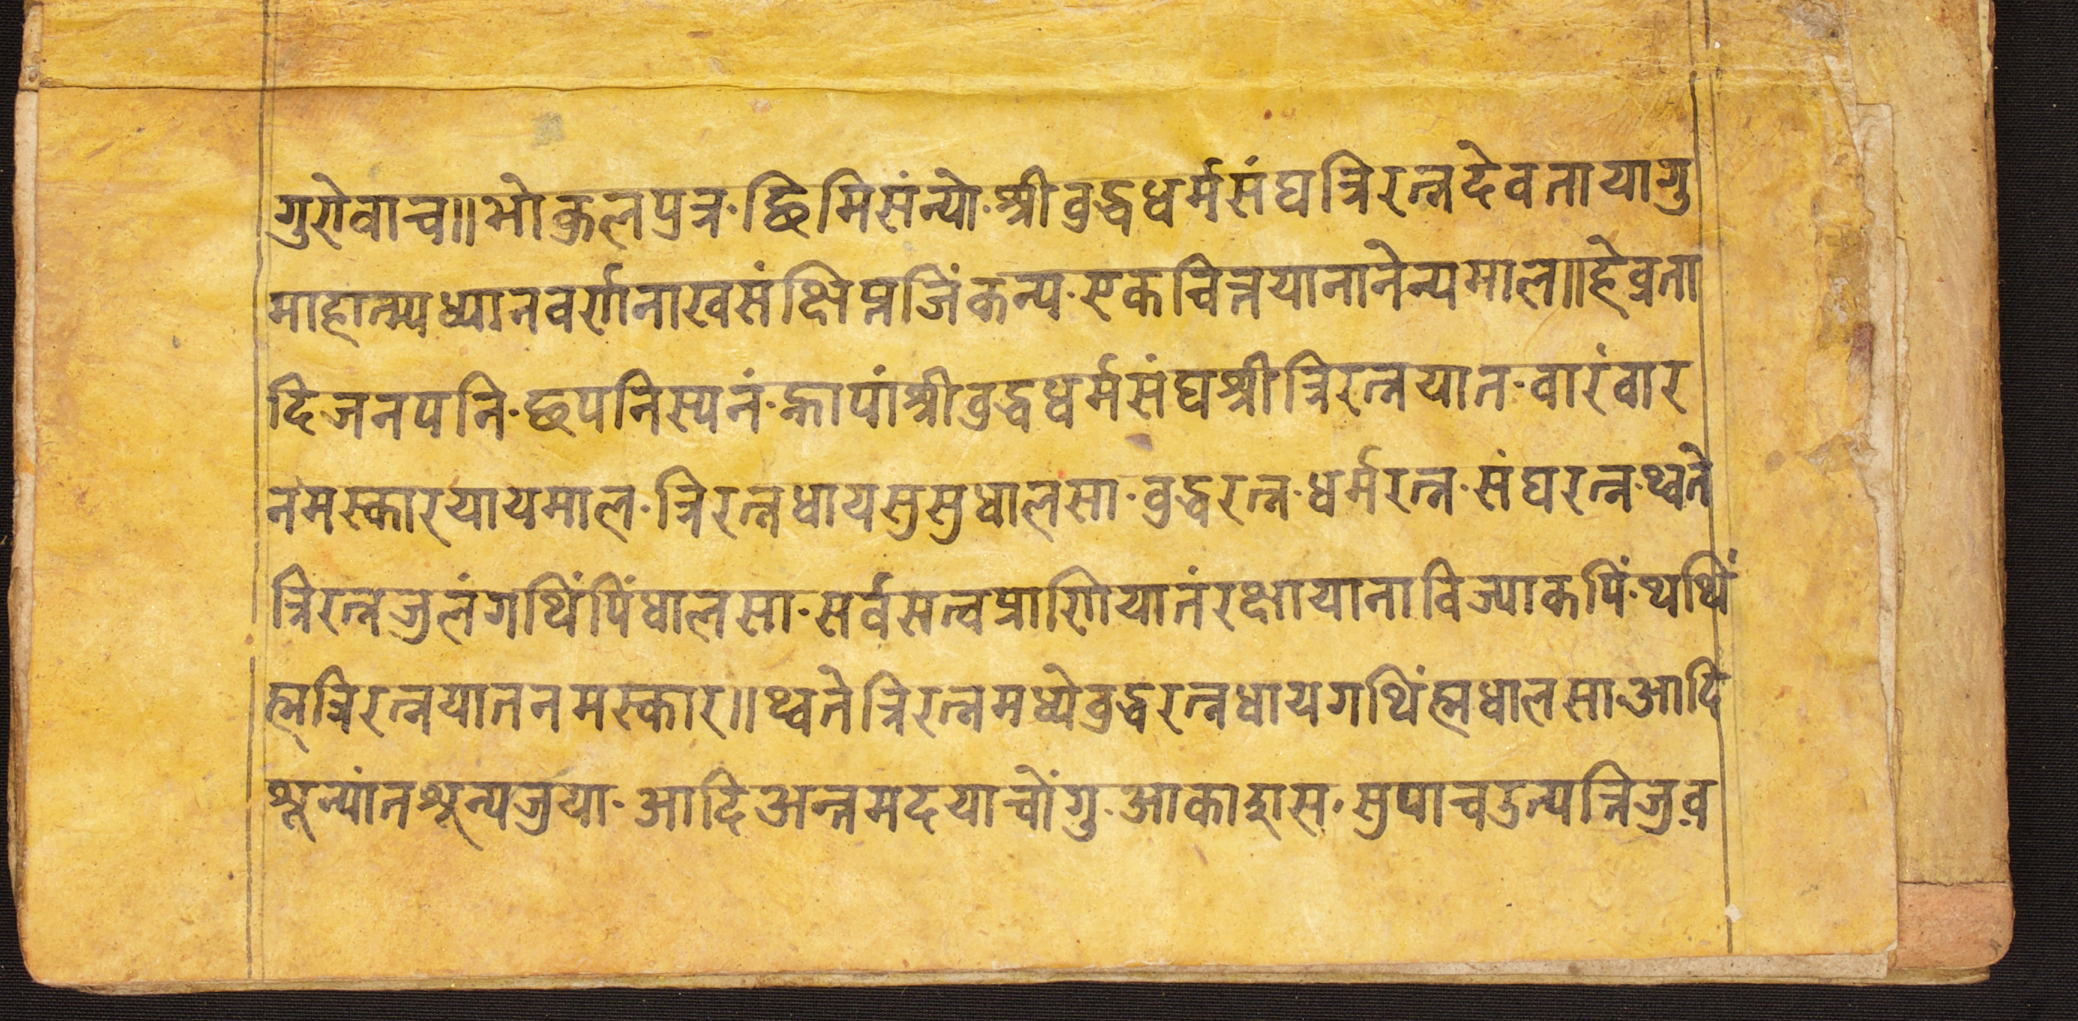 गुरोवाच॥भोकुलपुत्र·छिमिसंन्यो·श्रीवुद्धधर्मसंघत्रिरत्नदेवतायागु
माहात्म्यध्यानवर्णनाखसंक्षिप्नजिंकन्य·एकचित्तयानानेन्यमाल॥हेव्रता
दिजनपनि·छपनिस्यनं·ह्नापांश्रीवुद्धधर्मसंघश्रीत्रिरत्नयात·वारंवार
नमस्कारयायमाल·त्रिरत्नधायसुसुधालसा·वुद्धरत्न·धर्मरत्न·संघरत्न·थ्वते
त्रिरत्नजुलंगथिंपिंधालसा·सर्वसत्वप्राणियातंरक्षायानाविज्याकपिं·थथिं
ह्मत्रिरत्नयातनमस्कार॥थ्वतेत्रिरत्नमध्येवुद्धरत्नधायगथिंह्मधालसा·आदि
श्रून्यांतश्रून्यजुया·आदिअन्तमदयाचोंगु·आकाशस·सुपाचउत्पत्तिजुव